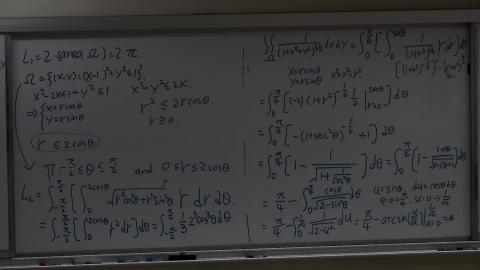 L₁ = 2·(area Ω) = 2·π.
Ω = {(x,y): (x-1)²+y² ≤ 1}.
x²-2x+1+y² ≤ 1. x²+y² ≤ 2x.
⇒ { x=rcosθ
y=rsinθ
r² ≤ 2rcosθ
r ≥ 0.
r ≤ 2cosθ.
-π/2 ≤ θ ≤ π/2. and 0 ≤ r ≤ 2cosθ.
L₂ = ∫_{-π/2}^{π/2} [ ∫_0^{2cosθ} √(r²cos²θ+r²sin²θ) r dr dθ.
= ∫_{-π/2}^{π/2} [∫_0^{2cosθ} r² dr] dθ = ∫_{-π/2}^{π/2} 1/3 2³cos³θ dθ
∬_Ω 1/(1+x²+y²)^{3/2} dxdy = ∫_0^{π/4} [ ∫_0^{secθ} 1/(1+r²)^{3/2} r dr] dθ
x=rcosθ x²+y²=r²
y=rsinθ
= ∫_0^{π/4} [(-2)(1+r²)^{-1/2} 1/2 |_{r=0}^{secθ}] dθ
= ∫_0^{π/4} [-(1+sec²θ)^{-1/2} + 1] dθ
= ∫_0^{π/4} [1 - 1/√(1+1/cos²θ)] dθ = ∫_0^{π/4} [1 - cosθ/√(cos²θ+1)] dθ
= π/4 - ∫_0^{π/4} cosθ/√(2-sin²θ) dθ u=sinθ, du=cosθdθ
= π/4 - ∫_0^{1/√2} 1/√(2-u²) du = π/4 - arcsin(u/√2)|_{u=0}^{1/√2}